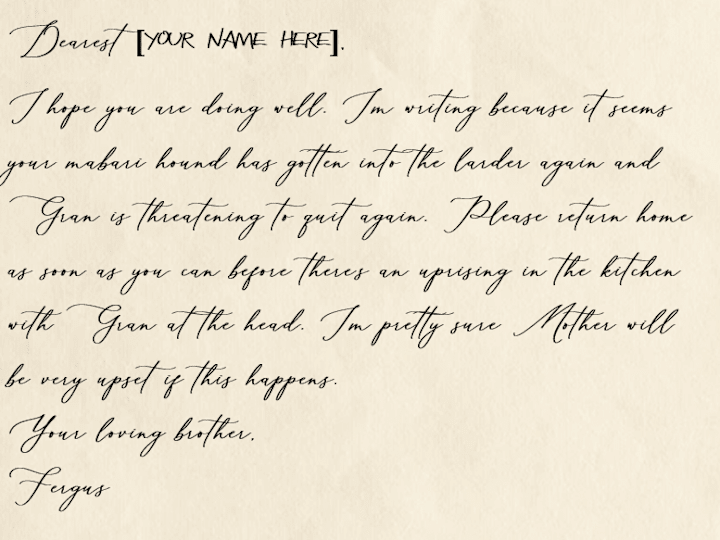 Dearest [YOUR NAME HERE],
I hope you are doing well. Im writing because it seems
your mabari hound has gotten into the larder again and
Gran is threatening to quit again. Please return home
as soon as you can before theres an uprising in the kitchen
with Gran at the head. Im pretty sure Mother will
be very upset if this happens.
Your loving brother,
Fergus